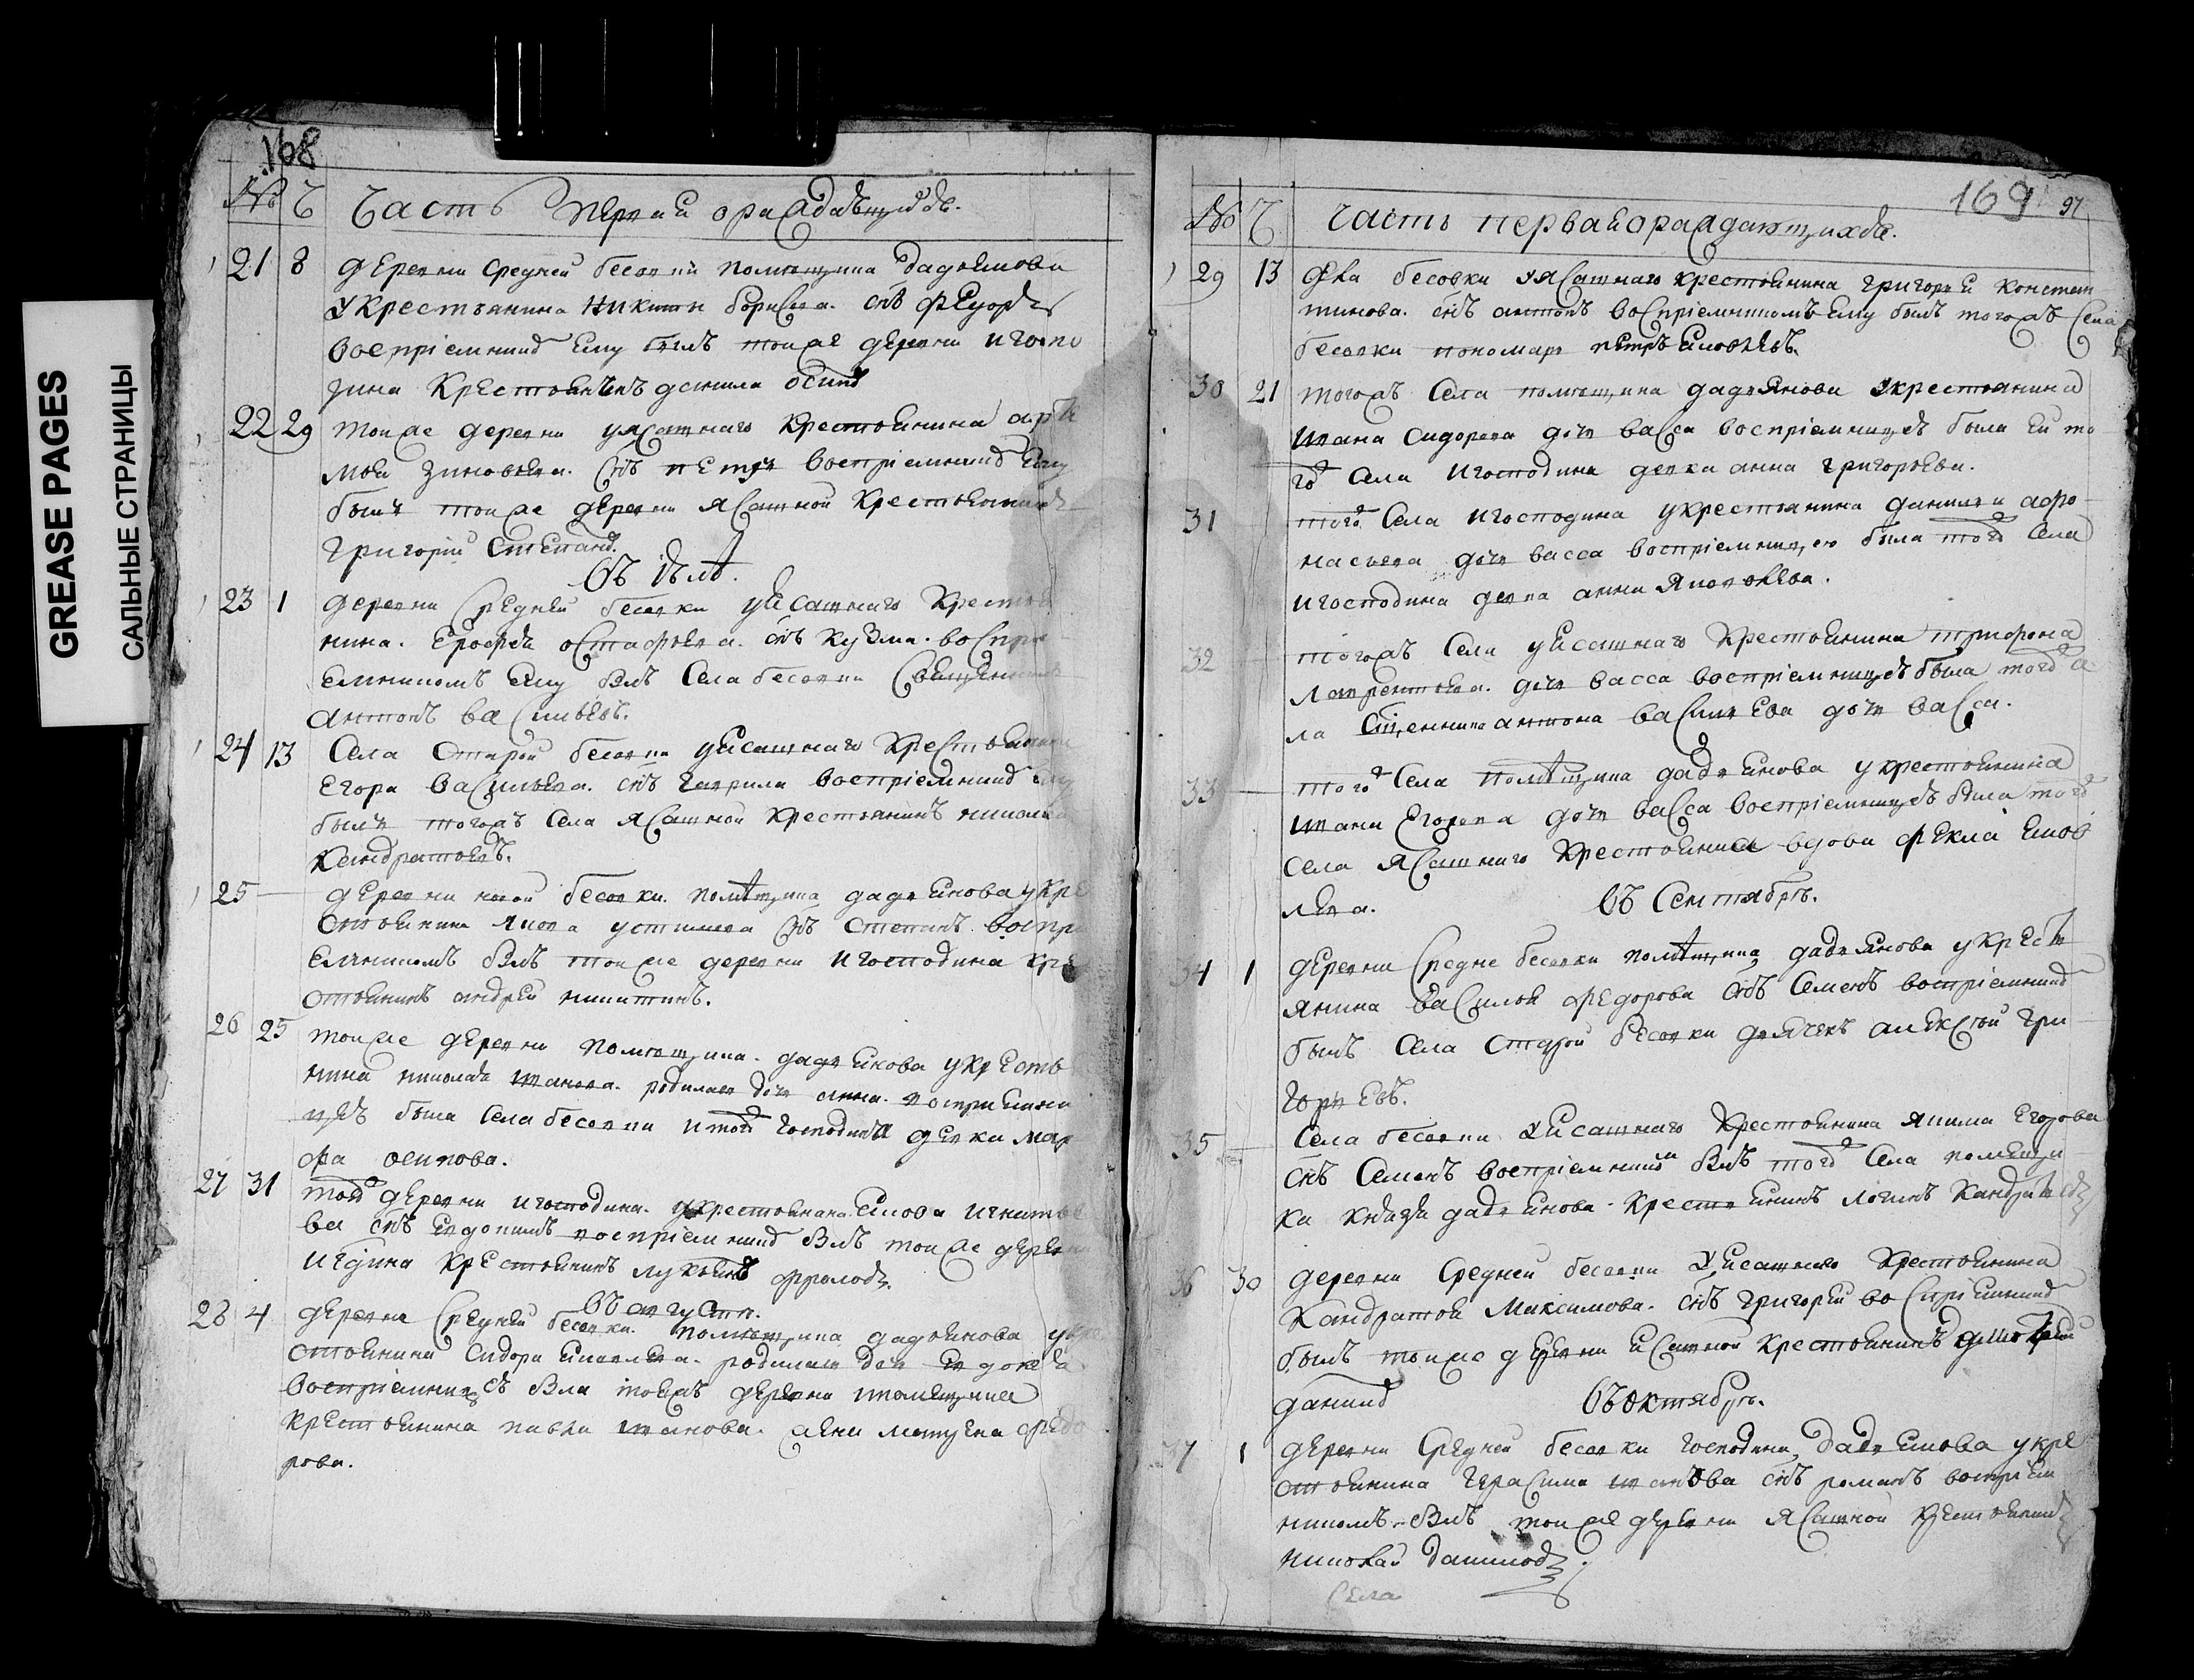 GREASE PAGES
САЛЬНЫЕ СТРАНИЦЫ
168
№ Ч Часть первая о раждающихся.
21 8 деревни средней бесовки помещика дадьянова
у крестьянина никиты борисова. снъ федоръ
воспрiемникъ ему былъ тоиже деревни и госпо
дина крестьянинъ данила осиповъ
22 29 тоиже деревни у ясашнаго крестьянина
зиновьева. снъ петръ воспрiемникъ ему
былъ тоиже деревни ясашной крестьянинъ
григорiй степановъ.
въ iюлѣ.
23 1 деревни средней бесовки у ясашнаго крестья
нина. ерофея остафьева. снъ кузма. воспри
емникомъ ему былъ села бесовки священникъ
антонъ васильевъ.
24 13 села старой бесовки у ясашнаго крестьянина
егора васильева. снъ гаврила воспрiемникъ ему
былъ тогожъ села ясашной крестьянинъ никола
кандратьевъ.
25 деревни новой бесовки. помѣщика дадьянова у кре
стьянина якова устинова снъ степанъ. воспри
емникомъ былъ тоиже деревни и господина кре
стьянинъ андрей никитинъ.
26 25 тоиже деревни помещика. дадьянова у кресть
нина николая иванова. родилась дочь анна. восприемни
цеѣ была села бесовки и того господина девка мар
фа осипова.
27 31 той деревни и господина. у крестьянина игнатье
ва снъ евдокимъ воспрiемникъ былъ тоиже деревни
и гдина крестьянинъ фроловъ.
въ августѣ.
28 4 деревни средней бесовки. помещика дадьянова у кре
стьянина сидора родилась дочь евдокея.
воспрiемницеѣ была тоежъ деревни помещика
крестьянина павла иванова. жена матрена федо
рова.
169 97
№ Ч Часть первая о раждающихся.
29 13 села бесовки у ясашнаго крестьянина григорья констан
тинова. снъ антонъ воспрiемникомъ ему былъ тогожъ села
бесовки пономарь петръ яковлевъ.
30 21 тогожъ села помещика дадьянова у крестьянина
ивана сидорова дочь васса воспрiемницеѣ была ей то
го села и господина девка анна григорьева.
31 того села и господина у крестьянина данилы афо
насьева дочь васса воспрiемницею была того села
и господина девка анна яковлева.
32 тогожъ села у ясашнаго крестьянина трифона
лаврентьева. дочь васса воспрiемницеѣ была того се
ла сщенника антона васильева дочь васса.
33 того села помѣщика дадьянова у крестьянина
ивана егорова дочь васса воспрiемницеѣ была того
села ясашнаго крестьянина вдова фекла яков
лева. въ сентябрѣ.
34 1 деревни средне бесовки помѣщика дадьянова у кресть
янина василья федорова снъ семенъ воспрiемникъ
былъ села старой бесовки дьячекъ алексѣй гри
горьевъ.
35 села бесовки у ясашнаго крестьянина якима егорова
снъ семенъ воспрiемникъ былъ того села помещи
ка князя дадьянова. крестьянинъ логинъ кандратьевъ
36 30 деревни средней бесовки у ясашнаго крестьянина
кандратья максимова. снъ григорей воспрiемникъ
былъ тоиже деревни ясашной крестьянинъ дмитрей
данилъ
въ октябрѣ.
37 1 деревни средней бесовки господина дадьянова у кре
стьянина герасима иванова снъ романъ воспрiем
никомъ былъ тоиже деревни ясашной крестьянинъ
николай даниловъ.
села